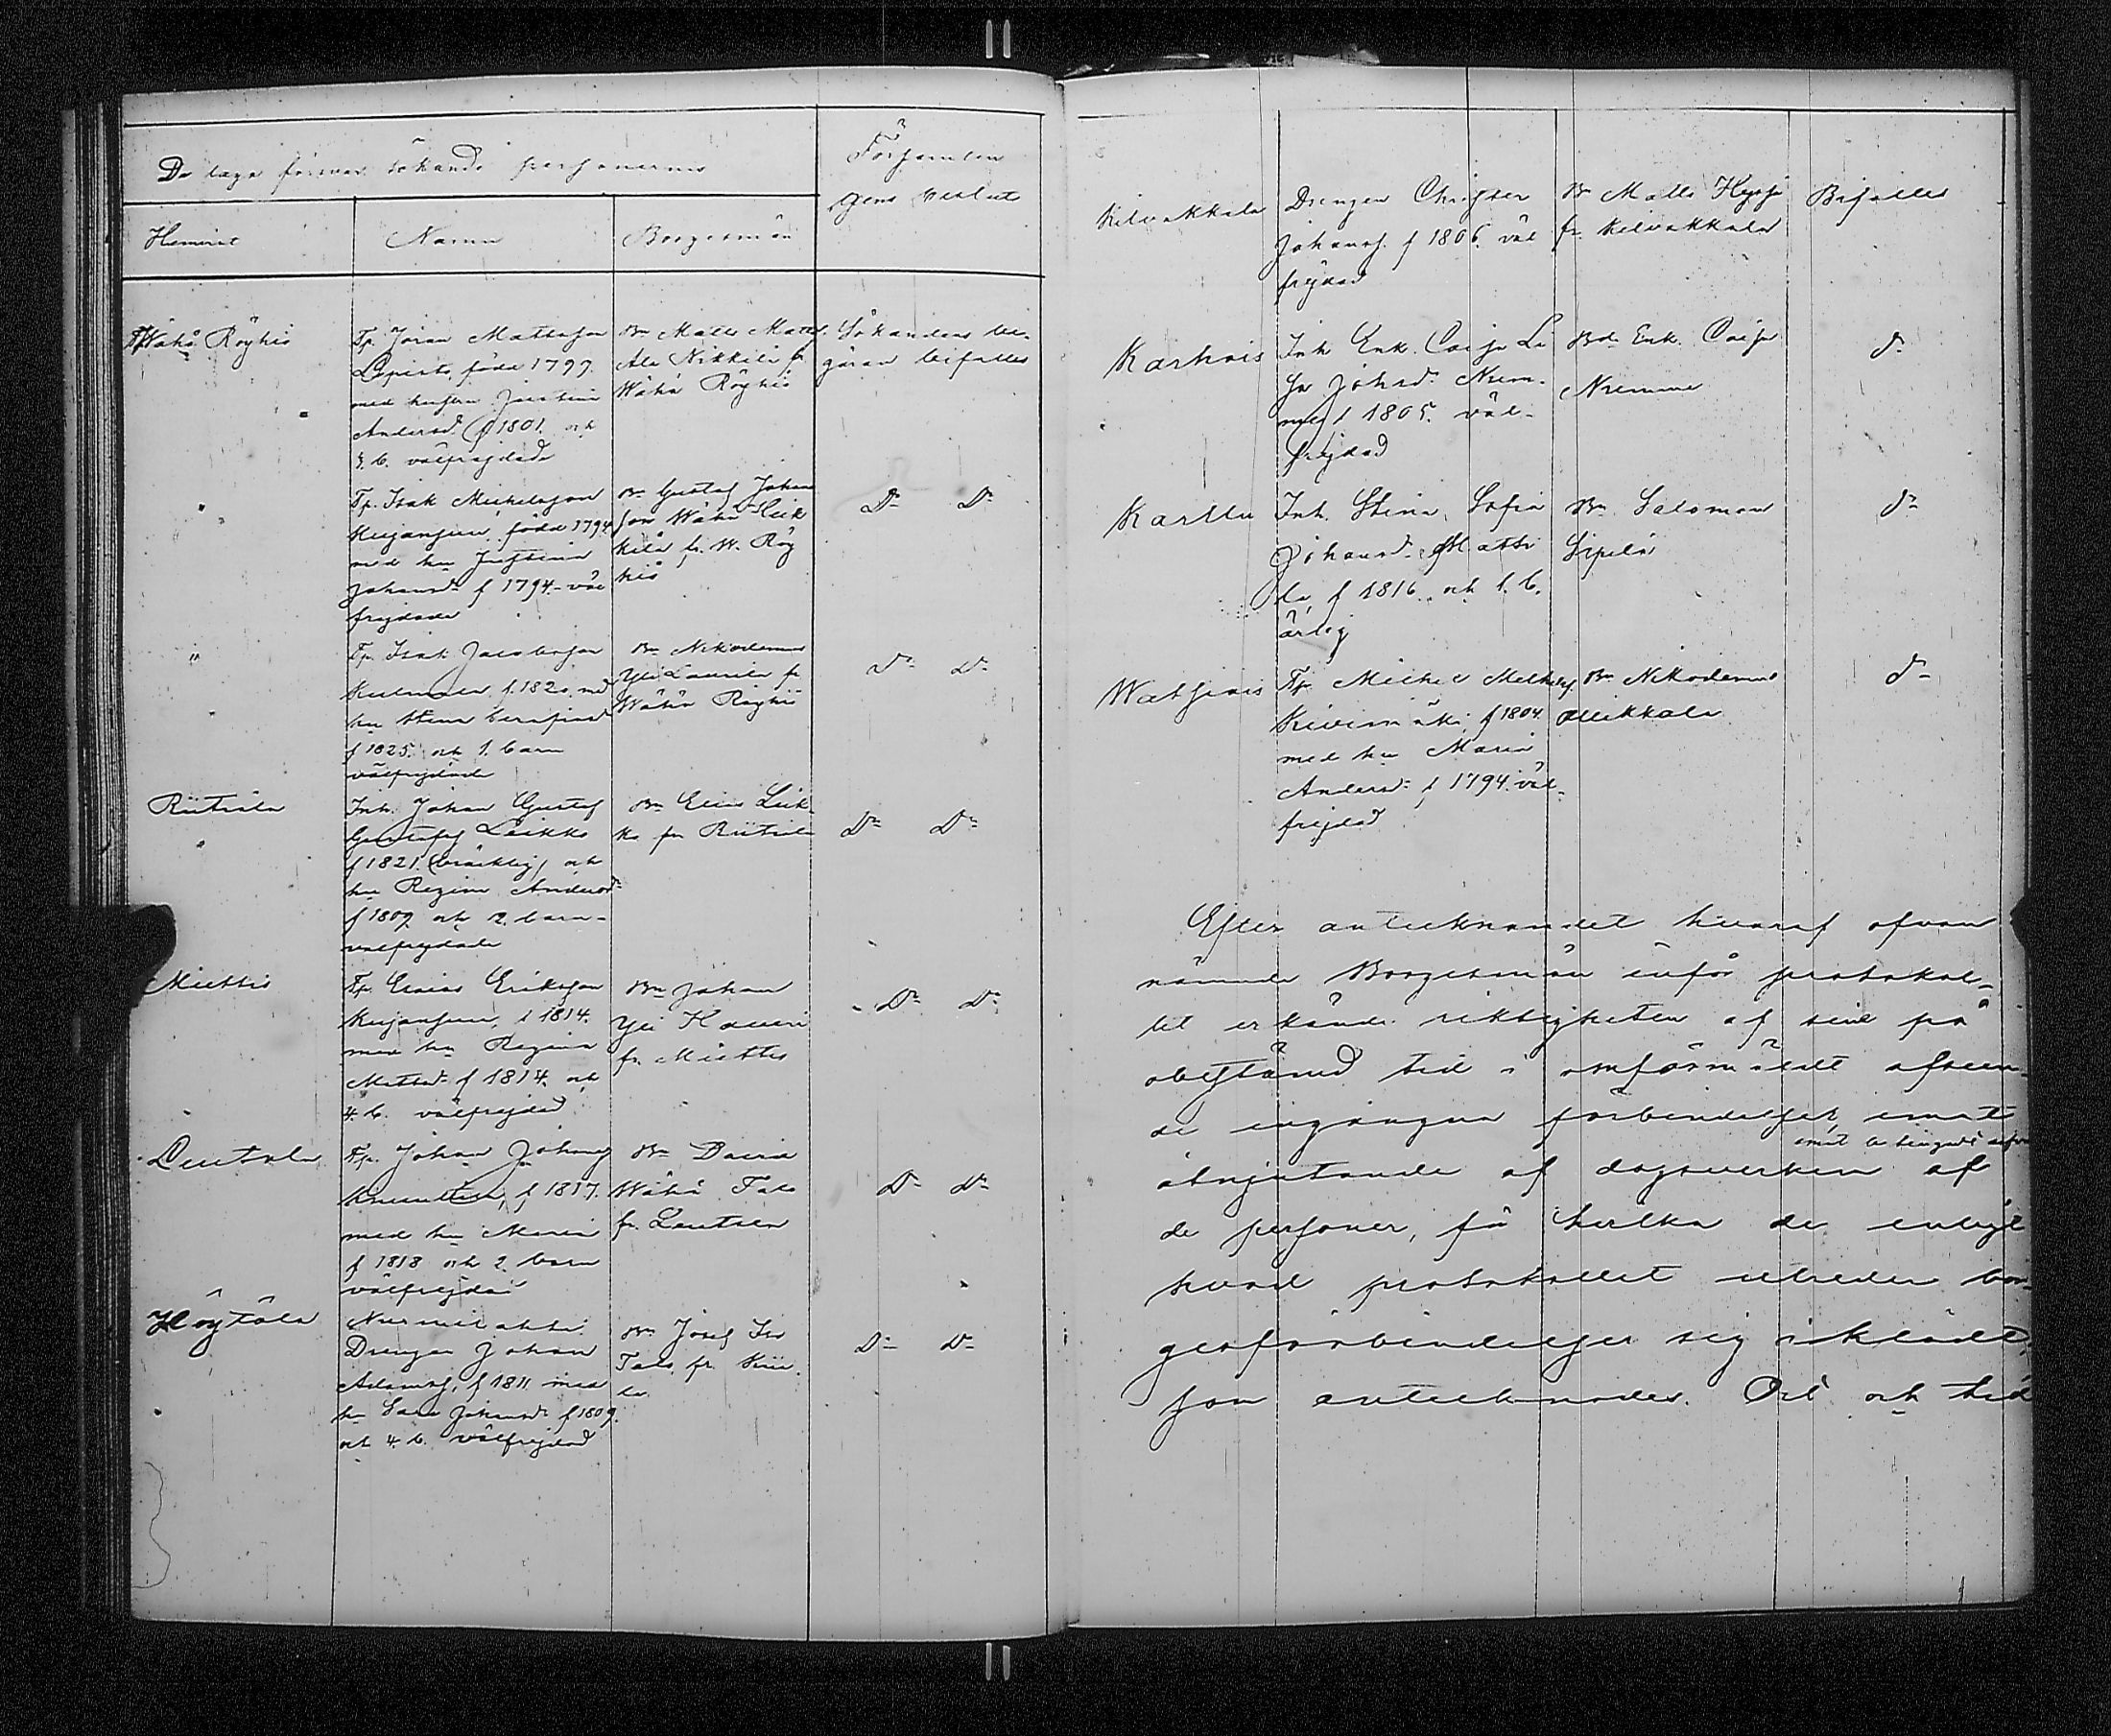 De laga försvar sökande personernes
Församlin
gens beslut
Hemvist
Namn
Borgesmän
Wähä Röyhiö
Tp. Jöran Mattsson
Lepistö, född 1797.
med hustru Justina
Andersdr f 1801. och
3. b. välfrejdade
Bn Matts Matss.
Ala Nikkilä fr
Wähä Röyhiö
Sökandens be-
gäran bifalles
"
Tp. Isak Michelsson
Kujanpää, född 1794
med hu Justina
Johansdr f 1794. väl
frejdade
Bn Gustaf Johans
son Wähä Heik
kilä fr. W. Röy
hiö
Do Do
"
Tp. Isak Jacobsson
f. 1820, med
hu Stina Serafiasdr
f 1825. och 1. barn
välfrejdade
Bn Nikodemus
Yli Laurila fr
Wähä Röyhiö
Do Do
Riitiala
Inh. Johan Gustaf
Gustafss Leikko
f 1821 (bräcklig) och
hu Regina Andersdr
f 1809 och 2. barn-
välfrejdade
Bn Elias Leik
ko fr Riitiala
Do Do
Miettis
Tp. Elias Eriksson
Kujanpää, f 1814.
med hu Regina
Mattsdr f 1814. och
4. b. välfrejdad
Bn Johan
Yli Haueri
fr. Miettis
Do Do
Leutsala
Tp. Johan Johans
f 1817.
med hu Maria
f 1818 och 2 barn
välfrejdad
Bn David
Wähä Talo
fr. Leutsala
Do Do
Höytölä
Nurmilahti
Drengen Johan
Adamss. f 1811 med
hu Sara Johansdr f 1809
och 4. b. välfrejdad
Bn Josef Iso
Talo fr. Kiia
la
Do Do
Kilvakkala
Drengen Christer
Johanss. f 1806. väl
frejdad
Bn Matts Hyppä
fr. Kilvakkala
Bifalles
Karhois
Inh Enk. Caisa Li
sa Johsdr Krem-
me f 1805. väl-
frejdad
Bde Enk. Caisa
Kremme
do
Karttu
Inh. Stina Sofia
Johansdr Matti
la f 1816. och 1. b.
ärlig
Bn Salomon
Sipilä
do
Watsiais
Tp. Michel Michelss.
Kivimäki f 1804.
med hu Maria
Andersdr f 1794. väl-
frejdad
Bn Nikodemus
Mikkola
do
Efter antecknandet hvaraf ofvan
nämnde Borgesmän inför protokol-
let erkände riktigheten af sine på
obestämd tid i omförmäldt afseen-
de ingångna förbindelser, emot
åtnjutande af dagsverken af
de personer, för hvilka de enligt
hvad protokollet utreder bor-
gesförbindelser sig iklädt,
som antecknades. Ort och tid